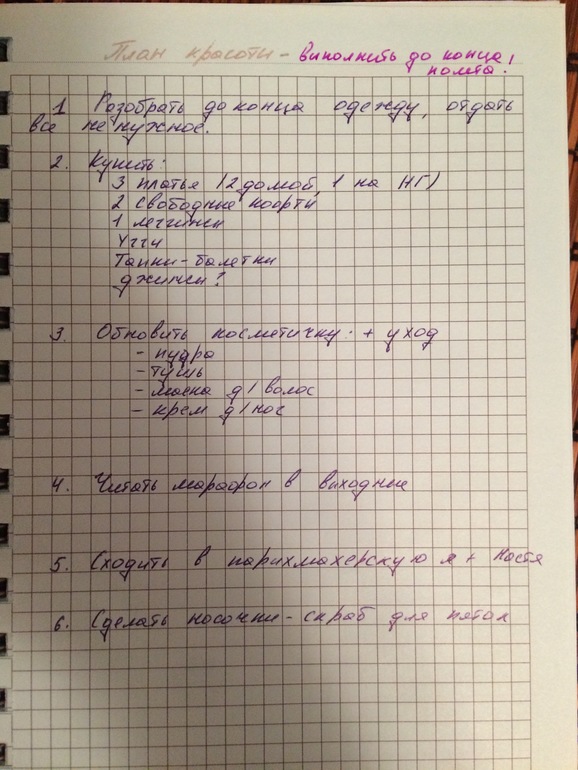 План красоты - выполнить до конца
полета!
1 Разобрать до конца одежду, отдать
все не нужное.
2. Купить:
3 платья (2 домой, 1 на НГ)
2 свободные кофты
1 леггинсы
Угги
Тапки-балетки
джинсы?
3. Обновить косметичку: + уход
- пудра
- тушь
- маска д/волос
- крем д/ног
4. Читать марафон в выходные
5. Сходить в парихмахерскую я + Настя
6. Сделать носочки-скраб для пяток